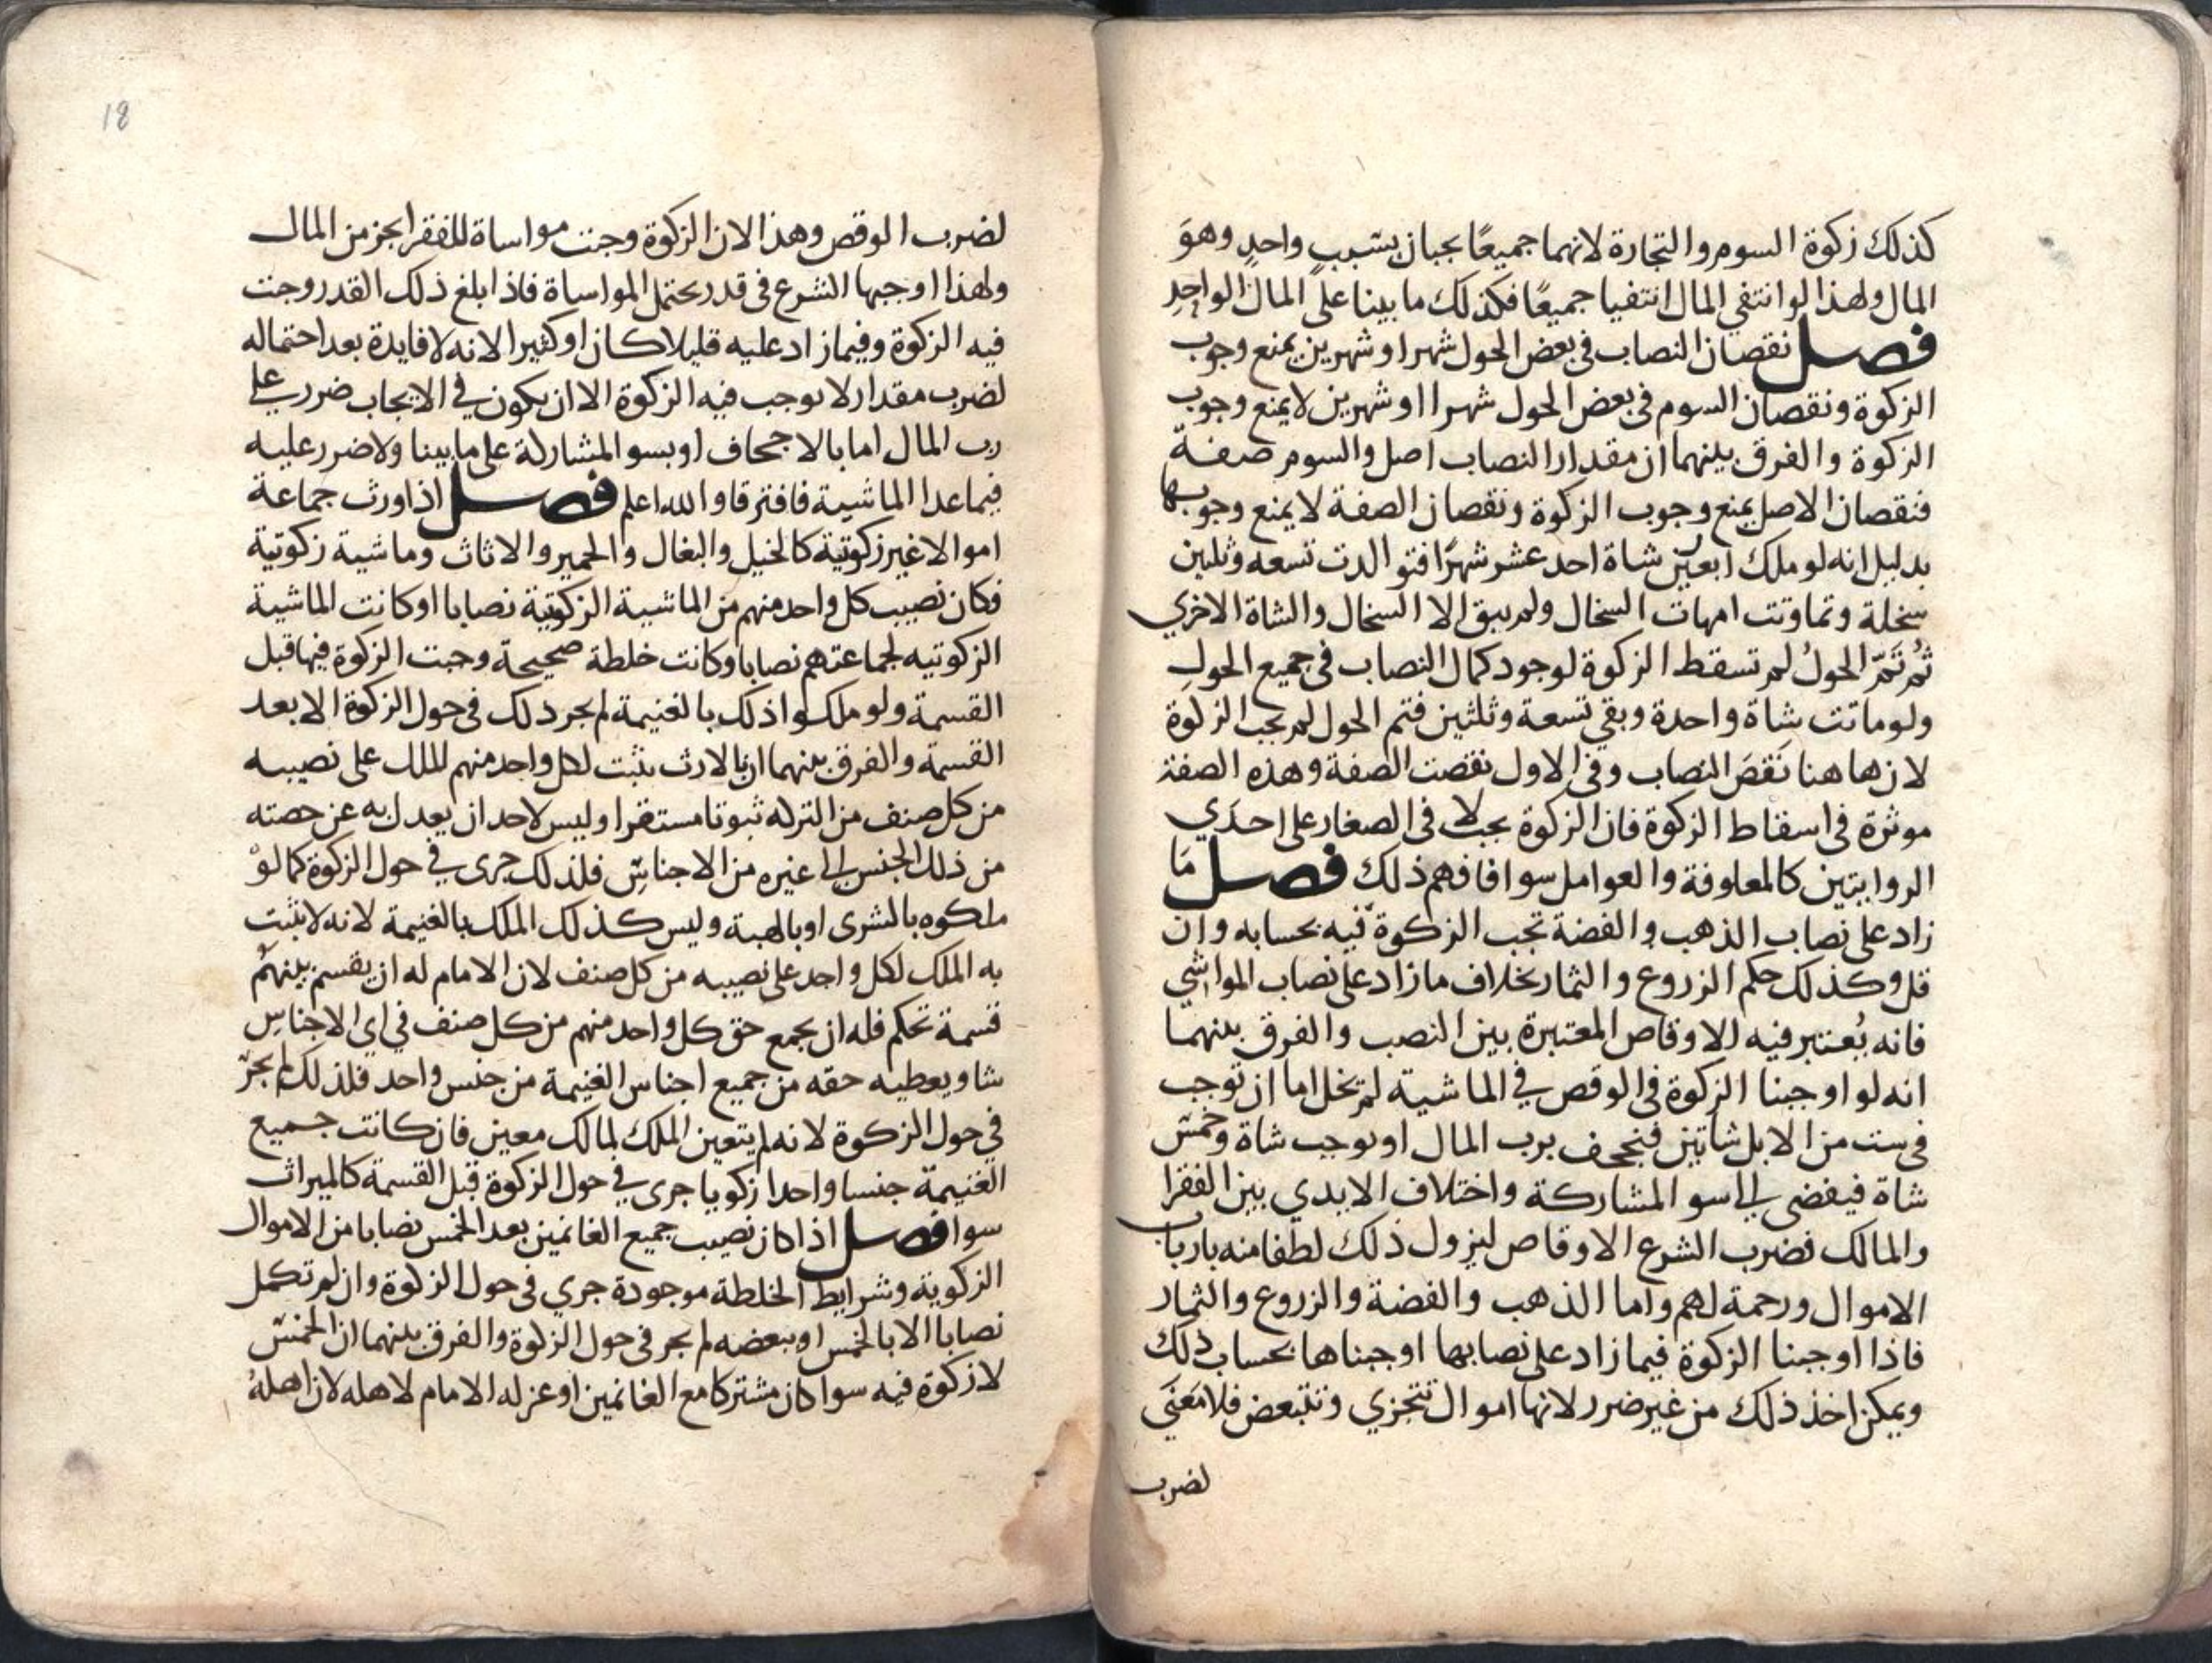 كذلك زكوة السوم والتجارة لانهما جميعًا يجبان بسببٍ واحدٍ وهوَ
المال ولهذا لو انتفي المال انتفيا جميعًا فكذلك ما بينا على المال الواحِدِ
فصل نقصان النصاب في بعض الحول شهرا او شهرين يمنع وجوب
الزكوة ونقصان السوم في بعض الحول شهرا او شهرين لا يمنع وجوب
الزكوة والفرق بينهما ان مقدار النصاب اصل والسوم صفة
فنقصان الاصل يمنع وجوب الزكوة ونقصان الصفة لا يمنع وجوبها
بدليل انه لو ملك اربعين شاة احد عشر شهرًا فتوالدت تسعه وثلثين
سخلة وتماوتت امهات السخال ولم يبق الا السخال والشاة الاخري
ثُم تَمّ الحولُ لم تسقط الزكوة لوجود كمال النصاب في جميع الحولِ
ولو ماتت شاة واحدة وبقي تسعة وثلثين فتم الحول لم يجب الزكوة
لان هاهنا نَقصَ النصاب وفي الاول نقصت الصفة وهذه الصفة
موثرة في اسقاط الزكوة فان الزكوة لا يجب في الصغار على احدَي
الروايتين كالمعلوفة والعوامل سوا فافهم ذلك فصل مَا
زاد على نصاب الذهب والفضة تجب الزكوة فيه بحسابه وان
قل وكذلك حكم الزروع والثمار بخلاف ما زاد على نصاب المواشي
فانه يُعتبر فيه الاوقاص المعتبرة بين النصب والفرق بينهما
انه لو اوجبنا الزكوة في الوقص في الماشية لم يخل اما ان توجب
في ست من الابل شاتين فيجحف برب المال او يوجب شاة وخمسَ
شاة فيفضي الي سو المشاركة واختلاف الايدي بين الفقرا
والمالك فضرب الشرع الاوقاص ليزول ذلك لطفا منه بارباب
الاموال ورحمة لهم واما الذهب والفضة والزروع والثمار
فاذا اوجبنا الزكوة فيما زاد على نصابها اوجبناها بحساب ذلك
ويمكن اخذ ذلك من غير ضرر لانها اموال تتجزي وتتبعض فلا معَنَي
لضرب
18
لضرب الوقص وهذا لان الزكوة وجبت مواساة للفقرا بجز من المال
ولهذا اوجبها الشرع في قدر يحتمل المواساة فاذا بلغ ذلك القدر وجبت
فيه الزكوة وفيما زاد عليه قليلا كان او كثيرا لانه لا فايدة بعد احتماله
لضرب مقدار لا يوجب فيه الزكوة الا ان يكون في الايجاب ضرر علي
رب المال اما بالاجحاف او بسو المشاركة على ما بينا ولا ضرر عليه
فيما عدا الماشية فافترقا والله اعلم فصل اذا ورث جماعة
اموالا غير زكوتية كالخيل والبغال والحمير والاثاث وماشية زكوتية
فكان نصيب كل واحد منهم من الماشية الزكوتية نصابا او كانت الماشية
الزكوتيه لجماعتهم نصابا وكانت خلطة صحيحة وجبت الزكوة فيها قبل
القسمة ولو ملكوا ذلك بالغنيمة لم يجر ذلك في حول الزكوة الا بعد
القسمة والفرق بينهما ان بالارث يثبت لكل واحد منهم الملك على نصيبه
من كل صنف من التركه ثبوتا مستقرا وليس لاحد ان يعدل به عن حصته
من ذلك الجنس الي غيره من الاجناسِ فلذلك جرى في حول الزكوة كما لوْ
ملكوه بالشرى او بالهبة وليس كذلك الملك بالغنيمة لانه لا يثبت
به الملك لكل واحد على نصيبه من كل صنف لان الامام له ان يقسم بينهُم
قسمة تحكم فله ان يجمع حق كل واحد منهم من كل صنف في اي الاجناسِ
شا ويعطيه حقه من جميع اجناس الغنيمة من جنس واحد فلذلك لم يجرْ
في حول الزكوة لانه لم يتعين الملك لمالك معين فان كانت جميع
الغنيمة جنسا واحدا زكويا جرى في حول الزكوة قبل القسمة كالميراث
سوا فصل اذا كان نصيب جميع الغانمين بعد الخمس نصابا من الاموال
الزكوية وشرايط الخلطة موجودة جري في حول الزكوة وان لم تكمل
نصابا الا بالخمس او ببعضه لم يجر في حول الزكوة والفرق بينهما ان الخمسَ
لا زكوة فيه سوا كان مشتركا مع الغانمين او عزله الامام لاهله لان اهلهُ